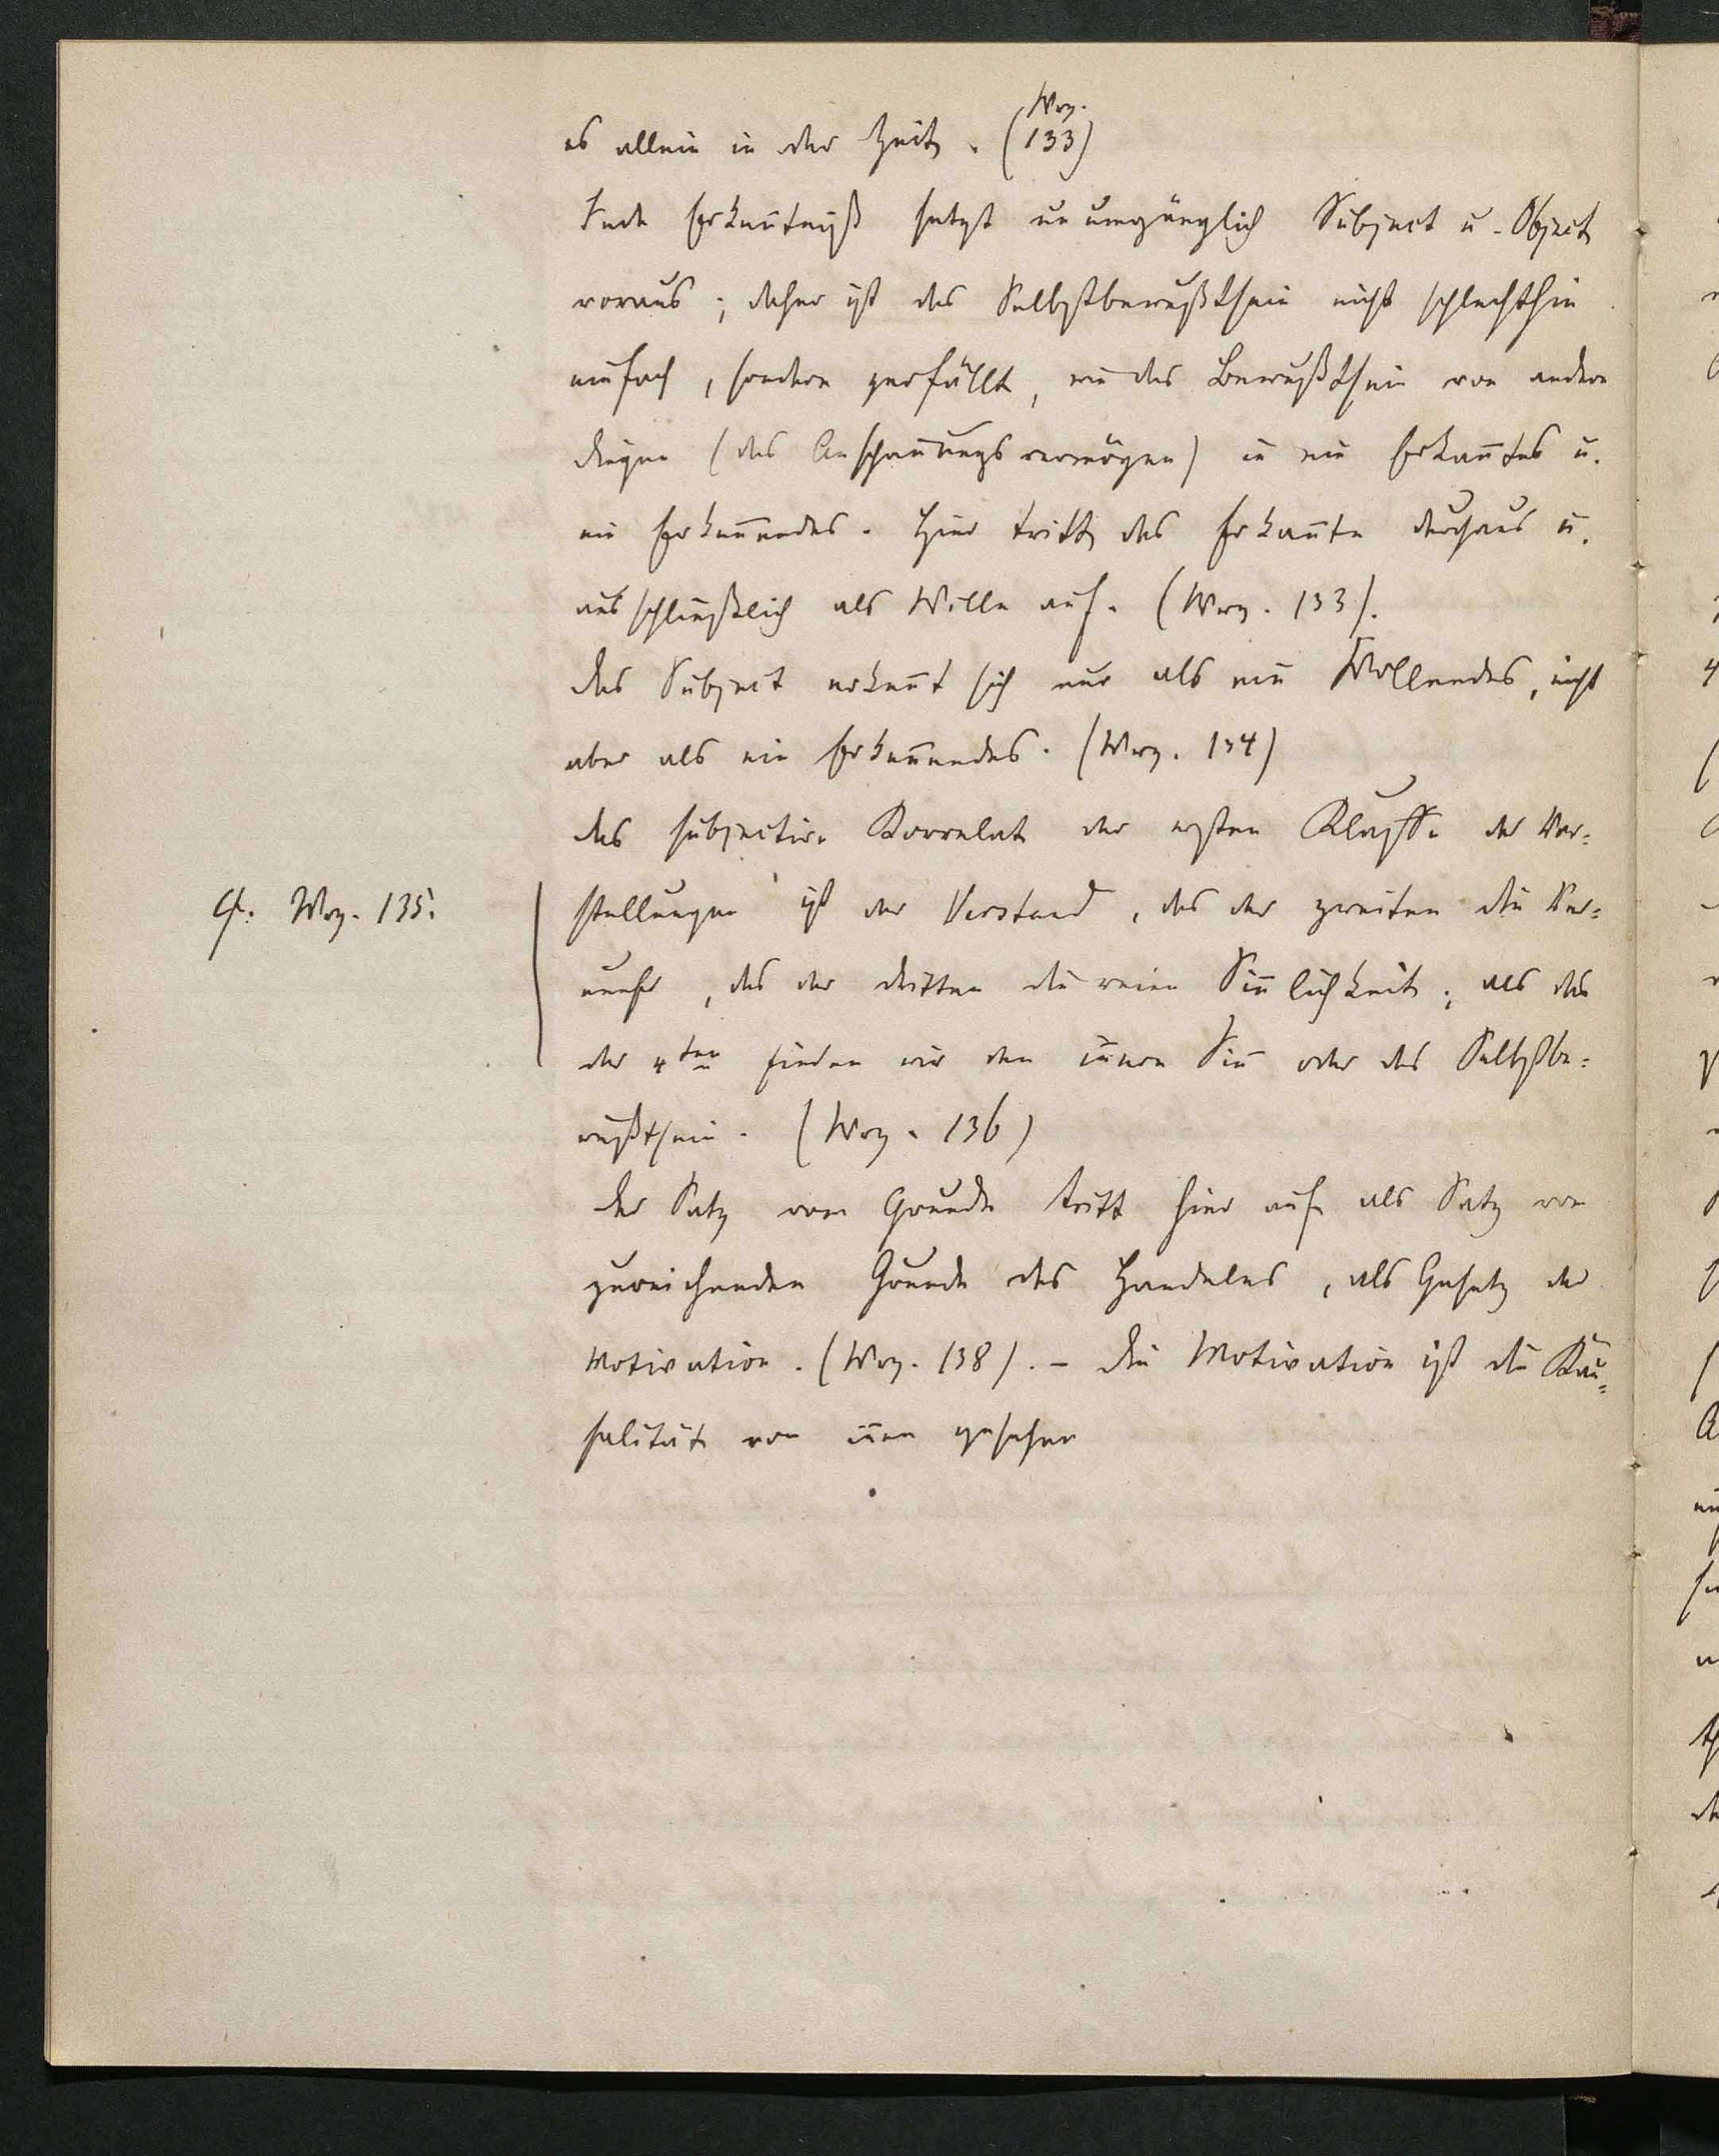 es allein in der Zeit. (Wrz. 133)
Jede Erkenntniß setzt unumgänglich Subject u. Object
voraus; daher ist das Selbstbewußtsein nicht schlechthin
einfach, sondern zerfällt, wie das Bewußtsein von andern
Dingen (das Anschauungsvermögen) in ein Erkanntes u.
ein Erkennendes. Hier tritt das Erkannte durchaus u.
ausschließlich als Wille auf. (Wrz. 133).
Das Subject erkennt sich nur als ein Wollendes, nicht
aber als ein Erkennendes. (Wrz. 134)
Das subjective Korrelat der ersten Klasse der Vor=
Cf. Wrz. 135.
stellungen ist der Verstand, das der zweiten die Ver=
nunft, das der dritten die reine Sinnlichkeit; als das
der 4ten finden wir den innern Sinn oder das Selbstbe=
wußtsein. (Wrz. 136)
Der Satz vom Grunde tritt hier auf als Satz vom
zureichenden Grunde des Handelns, als Gesetz der
Motivation. (Wrz. 138). – Die Motivation ist die Kau=
salität von innen gesehen